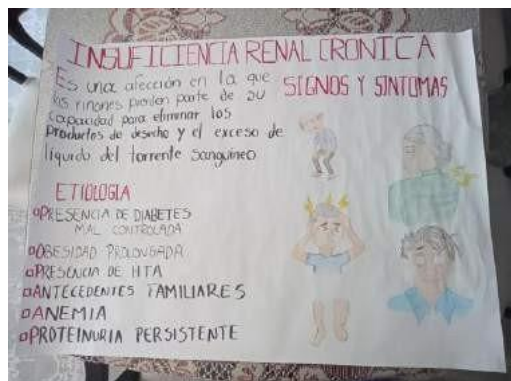 INSUFICIENCIA RENAL CRONICA
Es una afección en la que
los riñones pierden parte de su
capacidad para eliminar los
productos de desecho y el exceso de
liquido del torrente sanguineo
SIGNOS Y SINTOMAS
ETIOLOGIA
PRESENCIA DE DIABETES
MAL CONTROLADA
OBESIDAD PROLONGADA
PRESENCIA DE HTA
ANTECEDENTES FAMILIARES
ANEMIA
PROTEINURIA PERSISTENTE